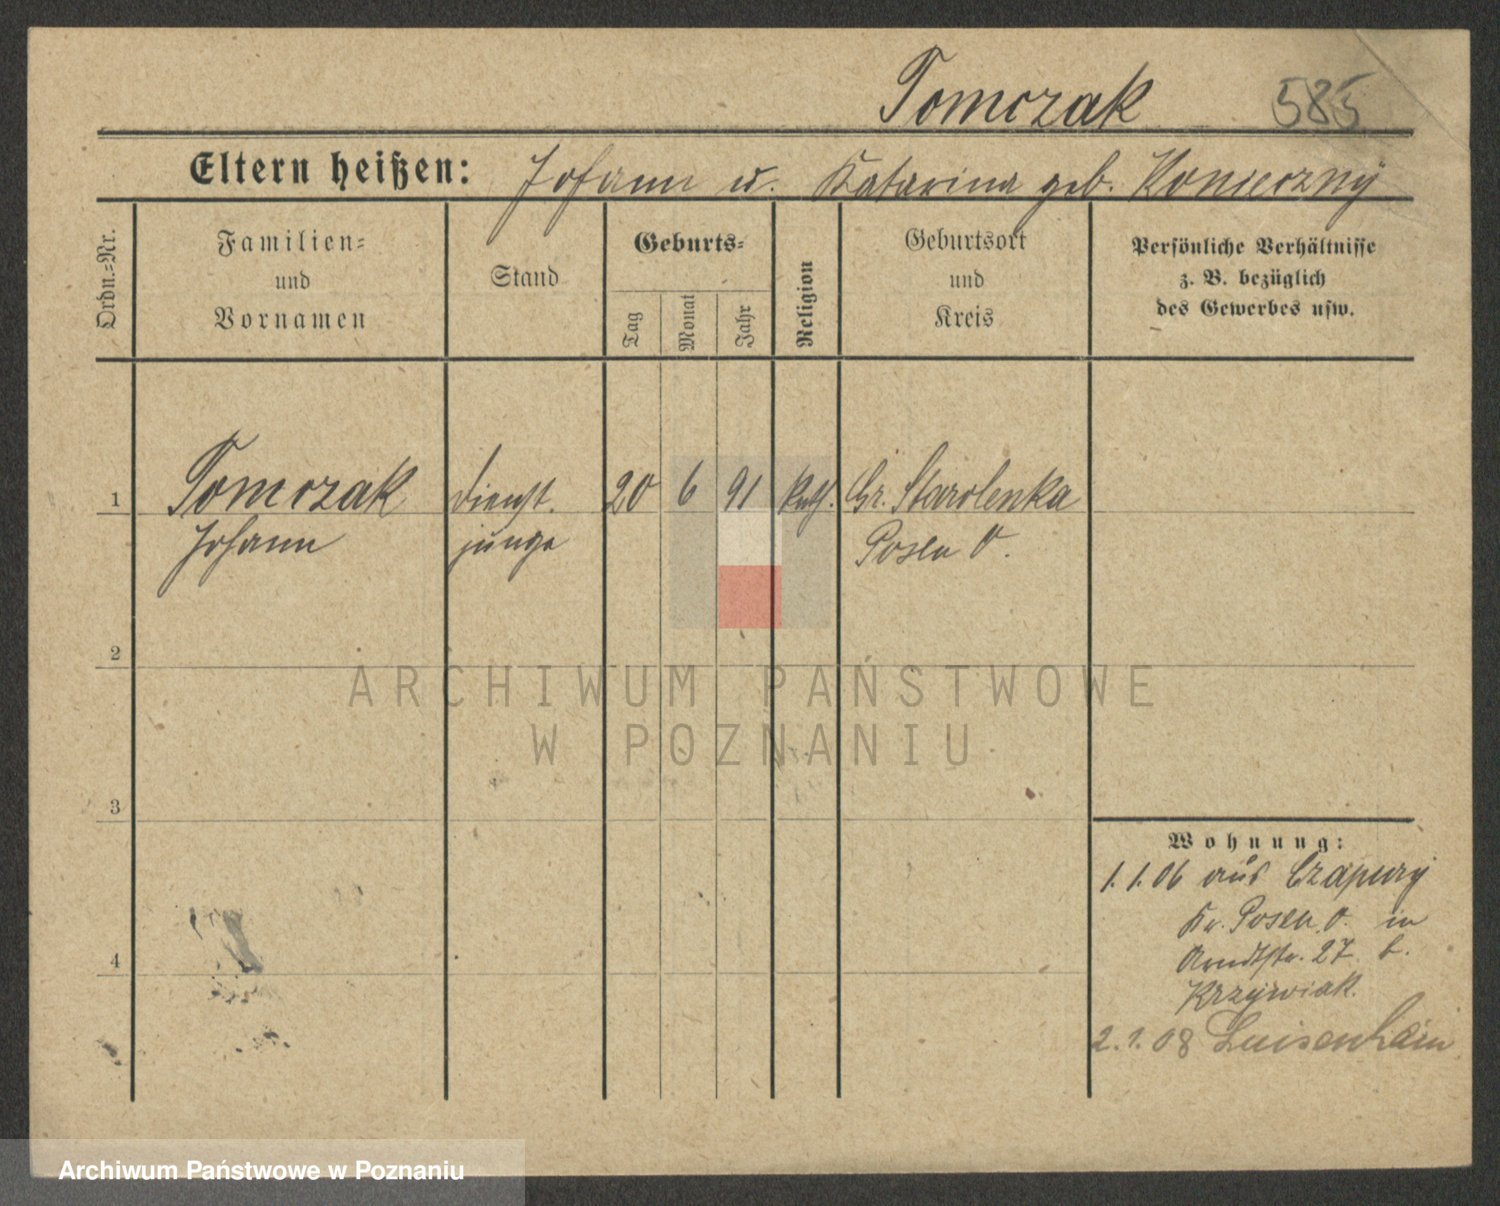 Tomczak 585
Eltern heißen: Johann u. Katarina geb. Konieczny
Ordn.-Nr.
Familien-
und
Vornamen
Stand
Geburts-
Tag
Monat
Jahr
Religion
Geburtsort
und
Kreis
Persönliche Verhältnisse
z. B. bezüglich
des Gewerbes usw.
1 Tomczak Dienst. 20 6 91 kath. Gr. Starolenka
Johann junge Posen O.
2
3
4
Wohnung:
1.1.06 aus Czapury
Kr. Posen O. in
Arndtstr. 27 b.
Krzywiak.
2.1.08 Luisenhain
ARCHIWUM PAŃSTWOWE
W POZNANIU
Archiwum Państwowe w Poznaniu